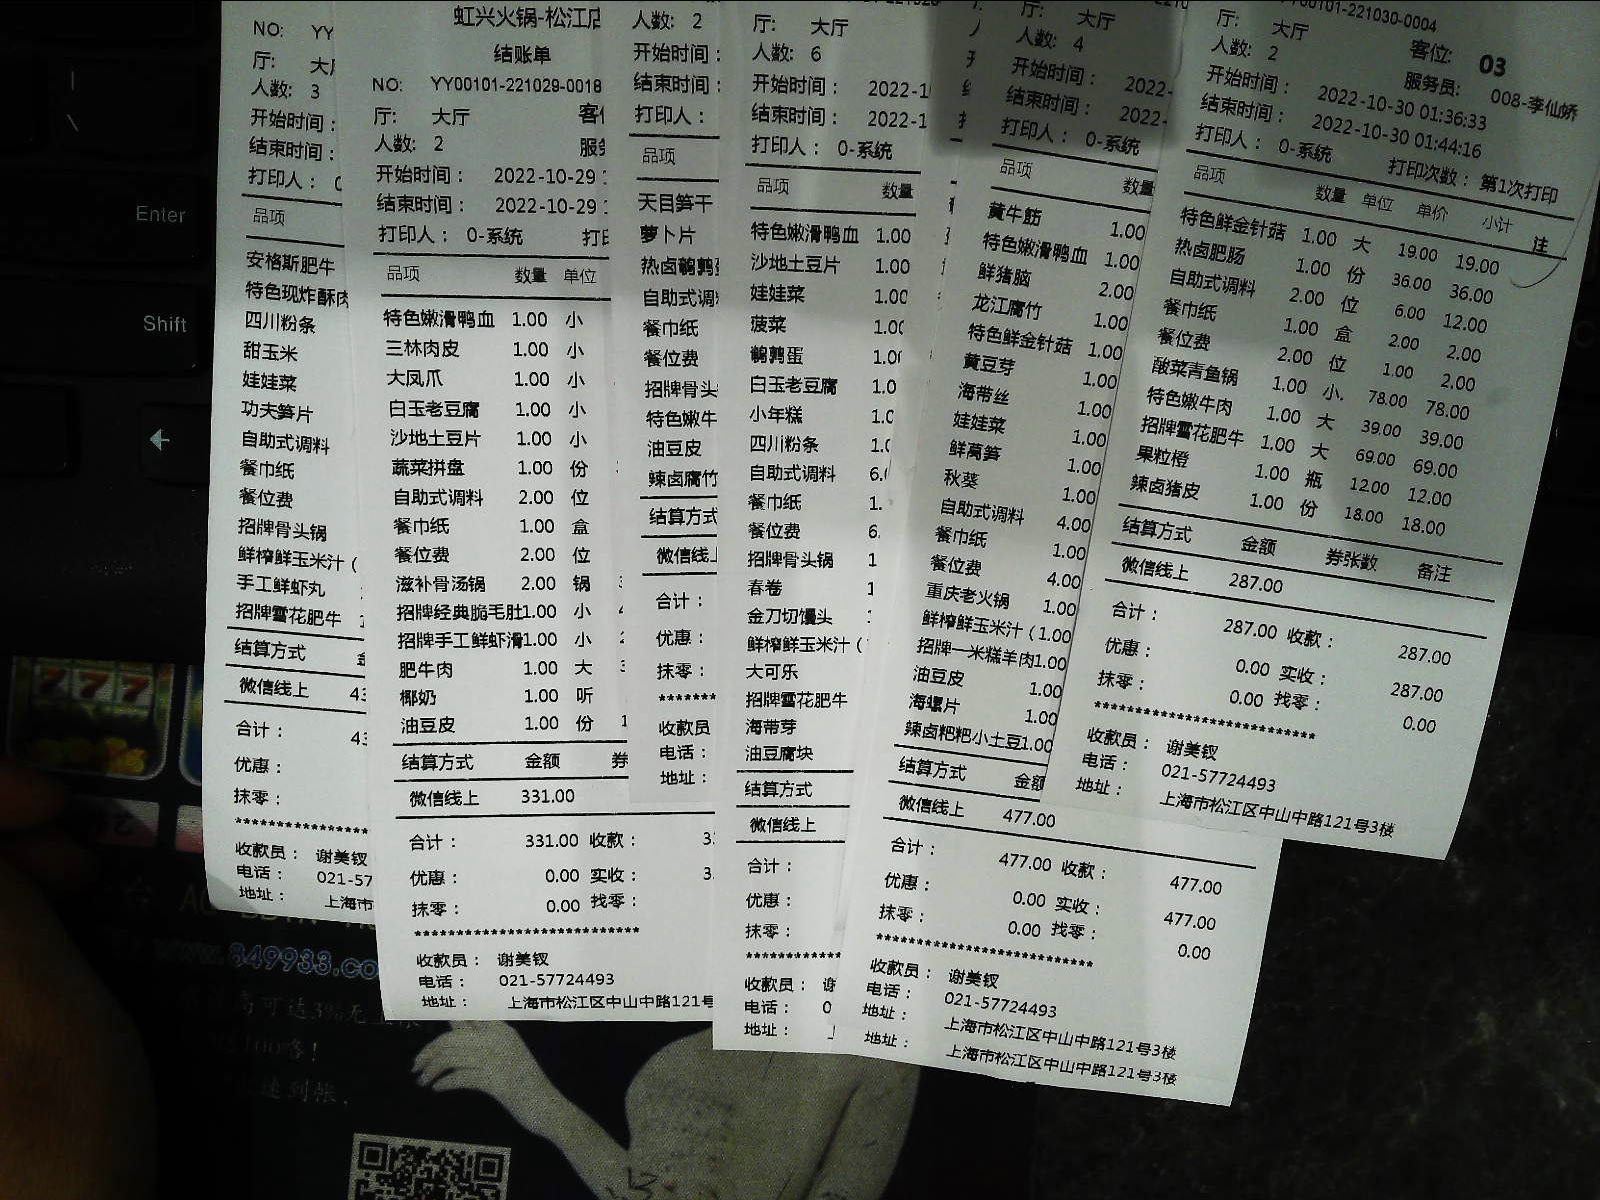 NO: YY
厅: 大厅
人数: 3
开始时间：
结束时间：
打印人：
品项
安格斯肥牛
特色现炸酥肉
四川粉条
甜玉米
娃娃菜
功夫笋片
自助式调料
餐巾纸
餐位费
招牌骨头锅
鲜榨鲜玉米汁（
手工鲜虾丸
招牌雪花肥牛
结算方式
微信线上 43
合计： 43
优惠：
抹零：
********************
收款员： 谢美钗
电话： 021-57
地址： 上海市
虹兴火锅-松江店
结账单
NO: YY00101-221029-0018
厅: 大厅
人数: 2
开始时间： 2022-10-29 1
结束时间： 2022-10-29 1
打印人： 0-系统 打印
品项 数量 单位
特色嫩滑鸭血 1.00 小
三林肉皮 1.00 小
大凤爪 1.00 小
白玉老豆腐 1.00 小
沙地土豆片 1.00 小
蔬菜拼盘 1.00 份
自助式调料 2.00 位
餐巾纸 1.00 盒
餐位费 2.00 位
滋补骨汤锅 2.00 锅
招牌经典脆毛肚1.00 小
招牌手工鲜虾滑1.00 小
肥牛肉 1.00 大
椰奶 1.00 听
油豆皮 1.00 份
结算方式 金额 券
微信线上 331.00
合计： 331.00 收款：
优惠： 0.00 实收：
抹零： 0.00 找零：
****************************
收款员： 谢美钗
电话： 021-57724493
地址： 上海市松江区中山中路121号
人数: 2
开始时间：
结束时间：
打印人：
品项
天目笋干
萝卜片
热卤鹌鹑蛋
自助式调料
餐巾纸
餐位费
招牌骨头
特色嫩牛
油豆皮
辣卤腐竹
结算方式
微信线上
合计：
优惠：
抹零：
*******
收款员
电话：
地址：
厅: 大厅
人数: 6
开始时间： 2022-1
结束时间： 2022-1
打印人： 0-系统
品项 数量
特色嫩滑鸭血 1.00
沙地土豆片 1.00
娃娃菜 1.00
菠菜 1.00
鹌鹑蛋 1.00
白玉老豆腐 1.0
小年糕 1.0
四川粉条 1.0
自助式调料 6.0
餐巾纸 1.
餐位费 6.
招牌骨头锅 1
春卷 1
金刀切馒头
鲜榨鲜玉米汁（
大可乐
招牌雪花肥牛
海带芽
油豆腐块
结算方式
微信线上
合计：
优惠：
抹零：
**************
收款员： 谢
电话： 0
地址：
厅: 大厅
人数: 4
开始时间： 2022-
结束时间： 2022-
打印人： 0-系统
品项 数量
黄牛筋 1.00
特色嫩滑鸭血 1.00
鲜猪脑 2.00
龙江腐竹 1.00
特色鲜金针菇 1.00
黄豆芽 1.00
海带丝 1.00
娃娃菜 1.00
鲜莴笋 1.00
秋葵 1.00
自助式调料 4.00
餐巾纸 1.00
餐位费 4.00
重庆老火锅 1.00
鲜榨鲜玉米汁（1.00
招牌一米糕羊肉1.00
油豆皮 1.00
海螺片 1.00
辣卤粑粑小土豆1.00
结算方式 金额
微信线上 477.00
合计： 477.00 收款： 477.00
优惠： 0.00 实收： 477.00
抹零： 0.00 找零： 0.00
****************************
收款员： 谢美钗
电话： 021-57724493
地址： 上海市松江区中山中路121号3楼
地址： 上海市松江区中山中路121号3楼
YY00101-221030-0004
厅: 大厅 客位: 03
人数: 2 服务员: 008-李仙娇
开始时间： 2022-10-30 01:36:33
结束时间： 2022-10-30 01:44:16
打印人： 0-系统 打印次数： 第1次打印
品项 数量 单位 单价 小计 注
特色鲜金针菇 1.00 大 19.00 19.00
热卤肥肠 1.00 份 36.00 36.00
自助式调料 2.00 位 6.00 12.00
餐巾纸 1.00 盒 2.00 2.00
餐位费 2.00 位 1.00 2.00
酸菜青鱼锅 1.00 小. 78.00 78.00
特色嫩牛肉 1.00 大 39.00 39.00
招牌雪花肥牛 1.00 大 69.00 69.00
果粒橙 1.00 瓶 12.00 12.00
辣卤猪皮 1.00 份 18.00 18.00
结算方式 金额 券张数 备注
微信线上 287.00
合计： 287.00 收款： 287.00
优惠： 0.00 实收： 287.00
抹零： 0.00 找零： 0.00
****************************
收款员： 谢美钗
电话： 021-57724493
地址： 上海市松江区中山中路121号3楼
Enter
Shift
777
www.849933.co